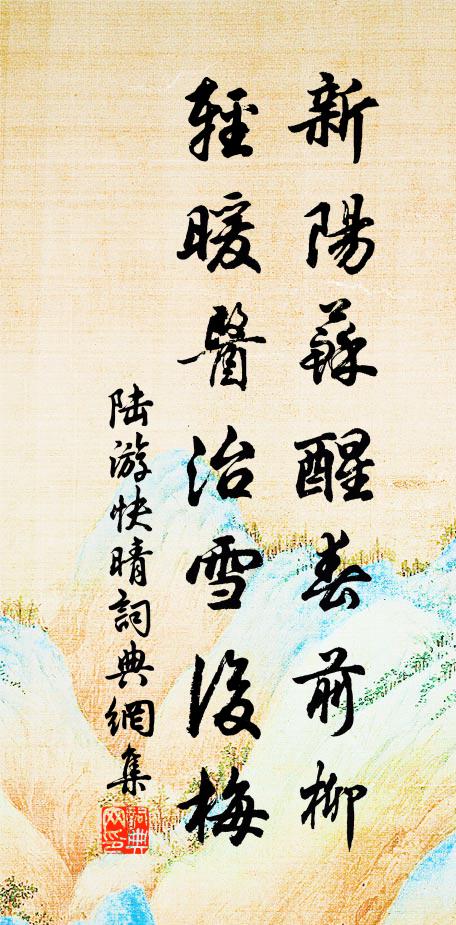 新陽蘇醒春前柳
輕暖醫治雪後梅
陆游快晴詞典網集
詞典